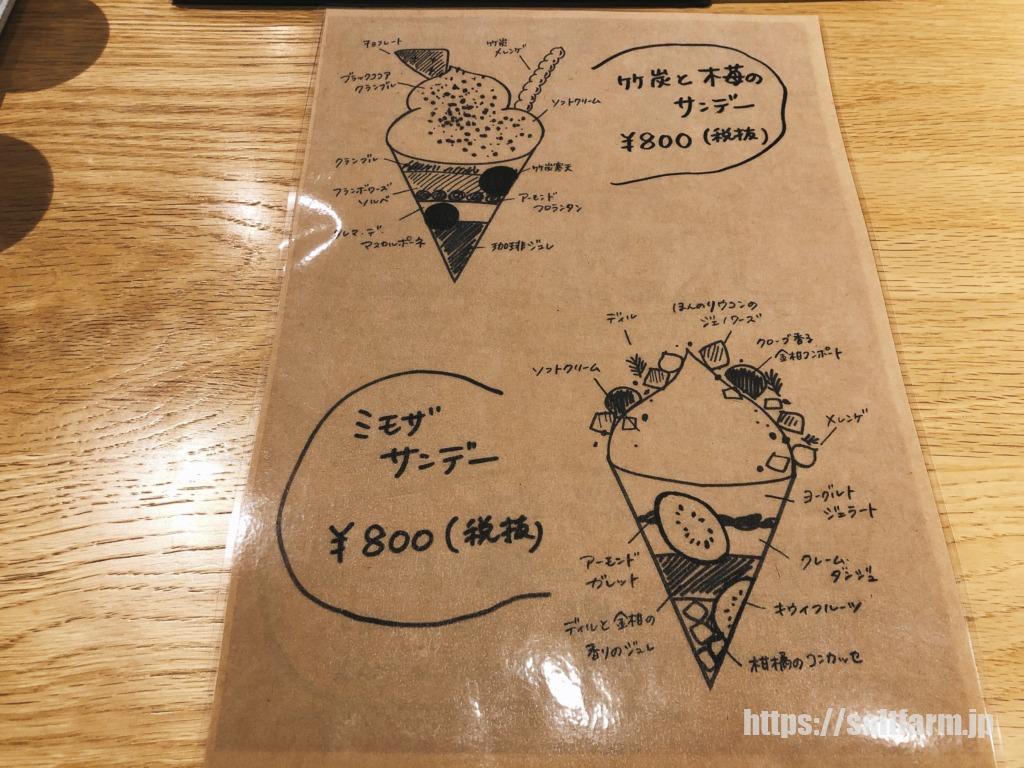 チョコレート
竹炭
メレンゲ
ブラックココア
クランブル
ソフトクリーム
竹炭と木苺の
サンデー
¥800(税抜)
クランブル
竹炭寒天
フランボワーズ
ソルベ
アーモンド
フロランタン
クレマ・デ
マスカルポーネ
珈琲ジュレ
ディル
ほんのりウコンの
ジェノワーズ
クローブ香る
金柑コンポート
ソフトクリーム
メレンゲ
ミモザ
サンデー
¥800(税抜)
ヨーグルト
ジェラート
アーモンド
ガレット
クレーム・
ダンジュ
キウイフルーツ
ディルと金柑の
香りのジュレ
柑橘のコンカッセ
https://saltfarm.jp